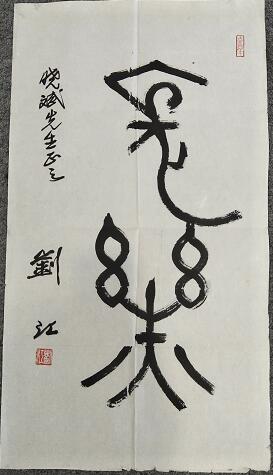 樂
晓斌先生正之
劉江